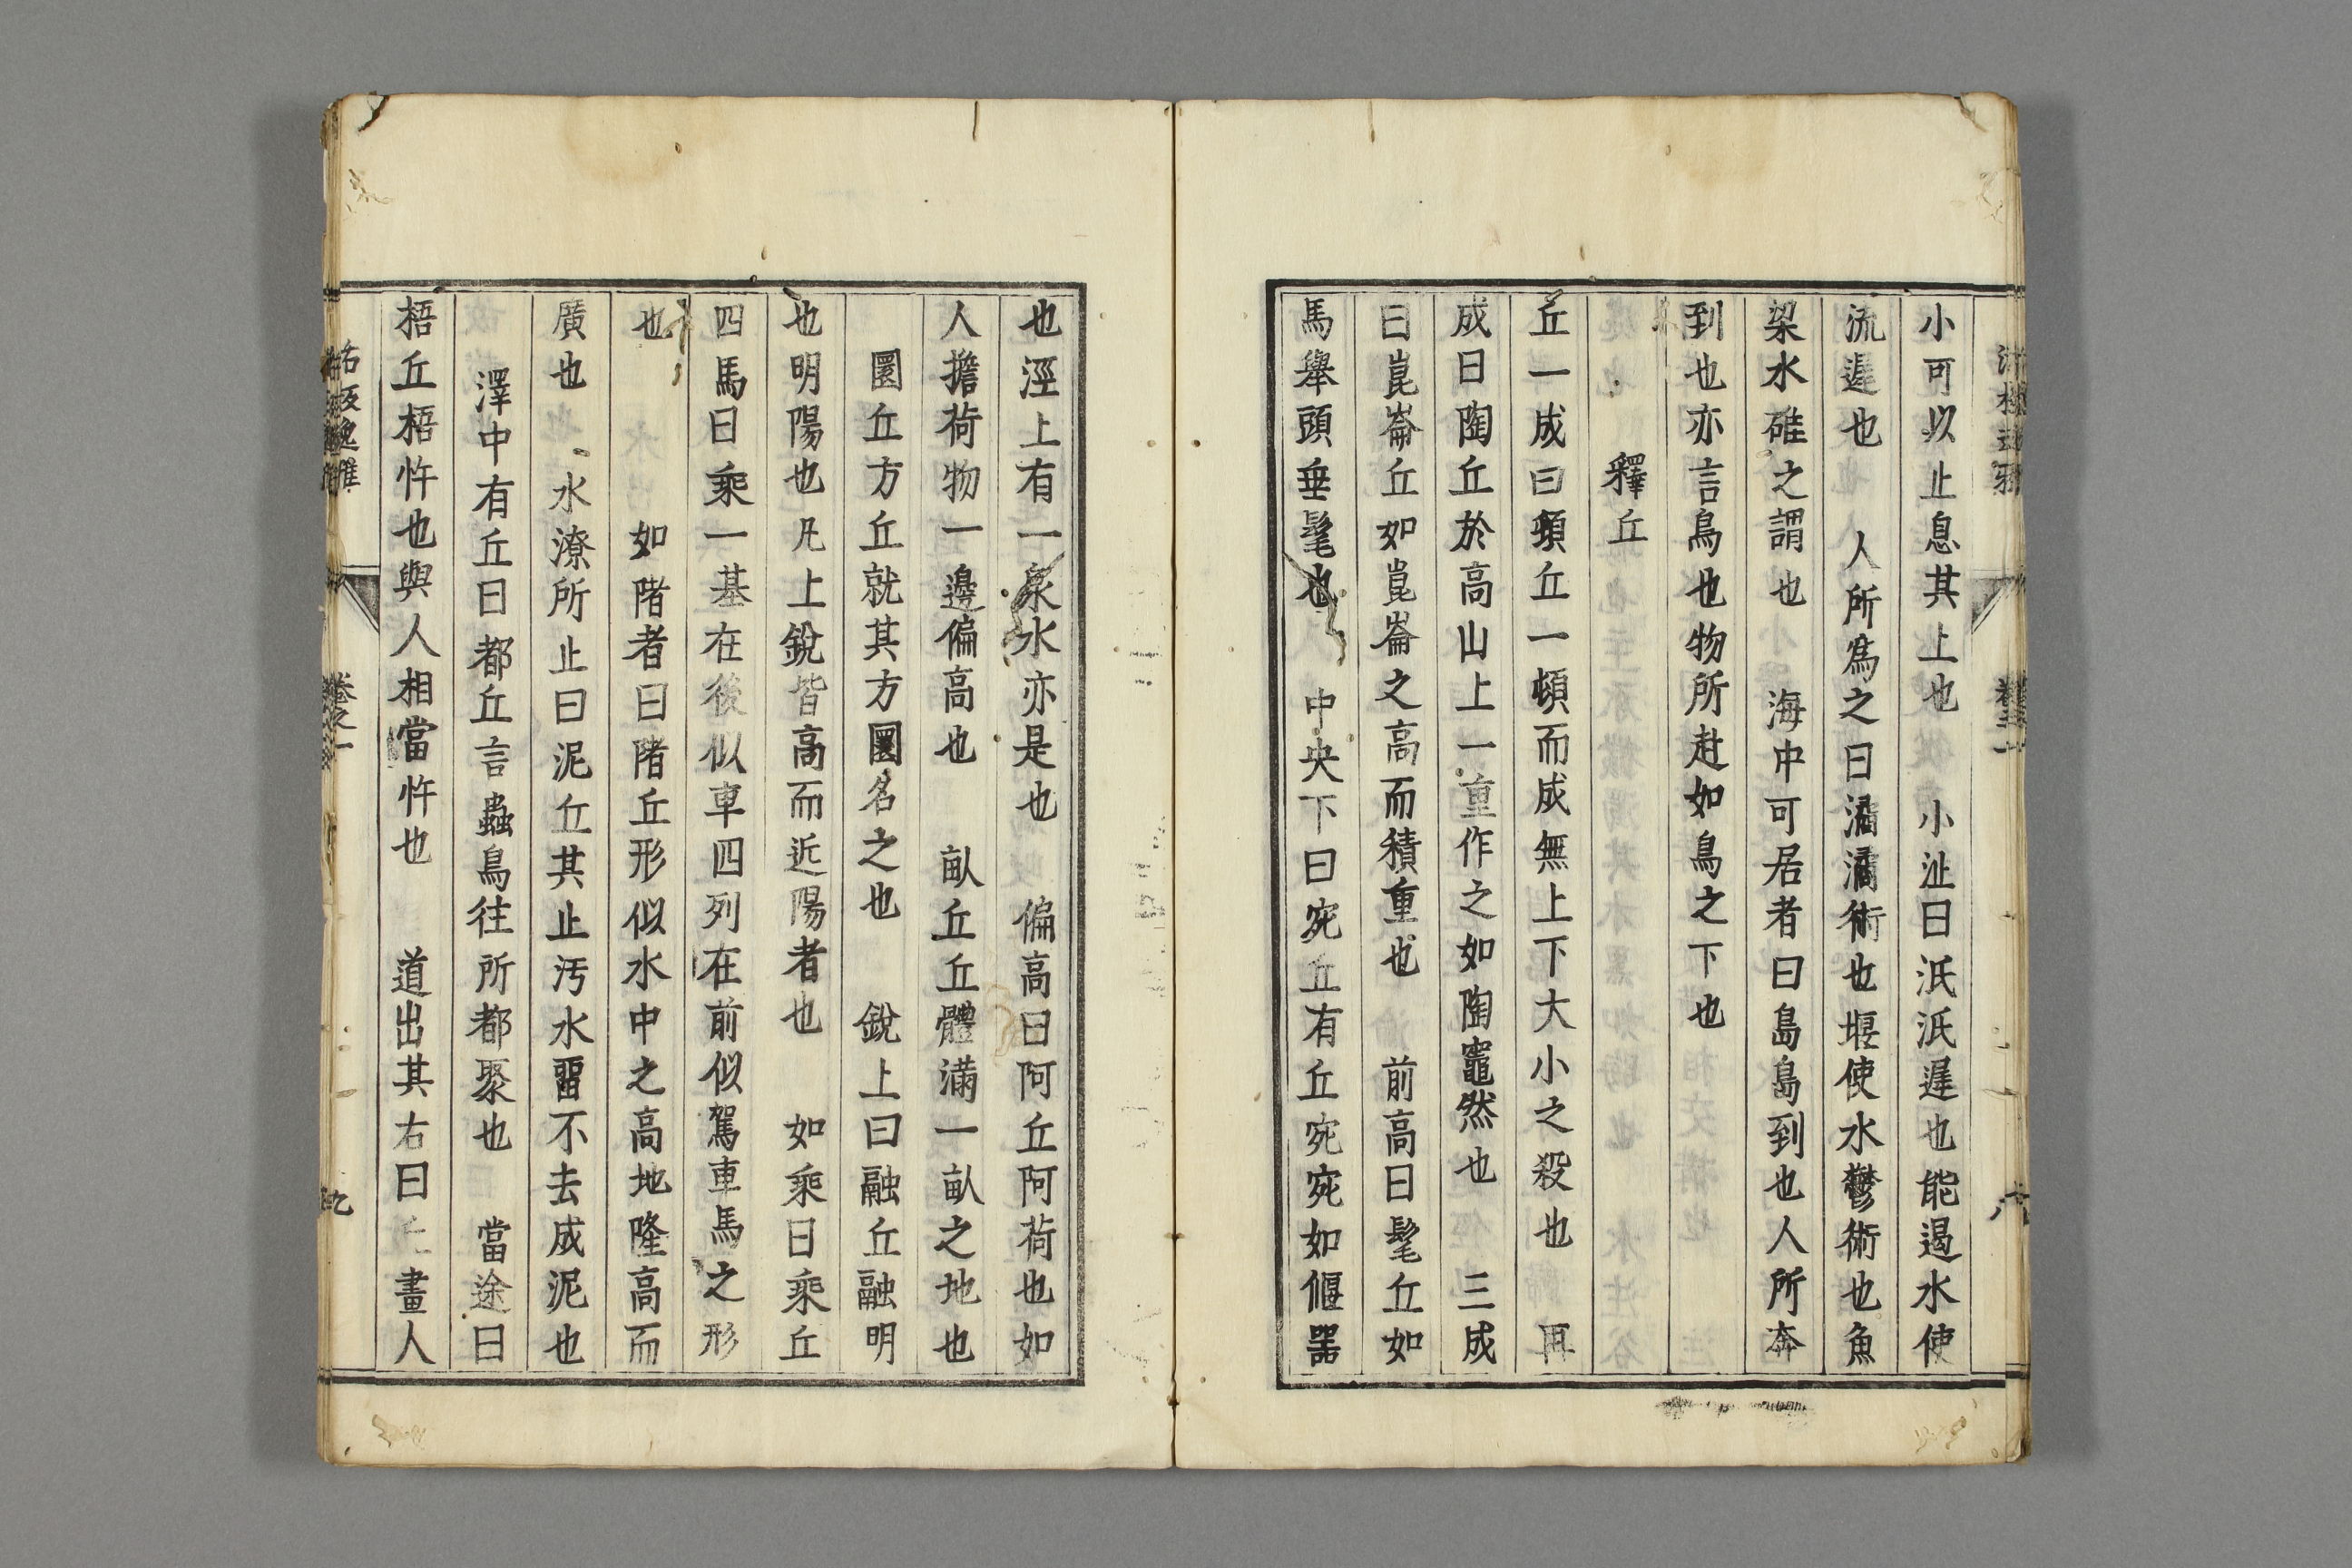 小可以止息其上也 小沚曰泜泜遲也能遏水使
流遲也 人所爲之曰潏潏術也堰使水鬱術也魚
梁水碓之謂也 海中可居者曰島島到也人所奔
到也亦言鳥也物所赴如鳥之下也
釋丘
丘一成曰頓丘一頓而成無上下大小之殺也 再
成曰陶丘於高山上一重作之如陶竈然也 三成
曰崑崙丘如崑崙之高而積重也 前高曰髦丘如
馬舉頭垂髦也 中央下曰宛丘有丘宛宛如偃器
也涇上有一泉水亦是也 偏高曰阿丘阿荷也如
人擔荷物一邊偏高也 畝丘丘體滿一畝之地也
圜丘方丘就其方圜名之也 銳上曰融丘融明
也明陽也凡上銳皆高而近陽者也 如乘曰乘丘
四馬曰乘一基在後似車四列在前似駕車馬之形
也 如陼者曰陼丘形似水中之高地隆高而
廣也 水潦所止曰泥丘其止汚水畱不去成泥也
澤中有丘曰都丘言蟲鳥往所都聚也 當途曰
梧丘梧忤也與人相當忤也 道出其右曰 畫人
古板逸雅
卷之一
九